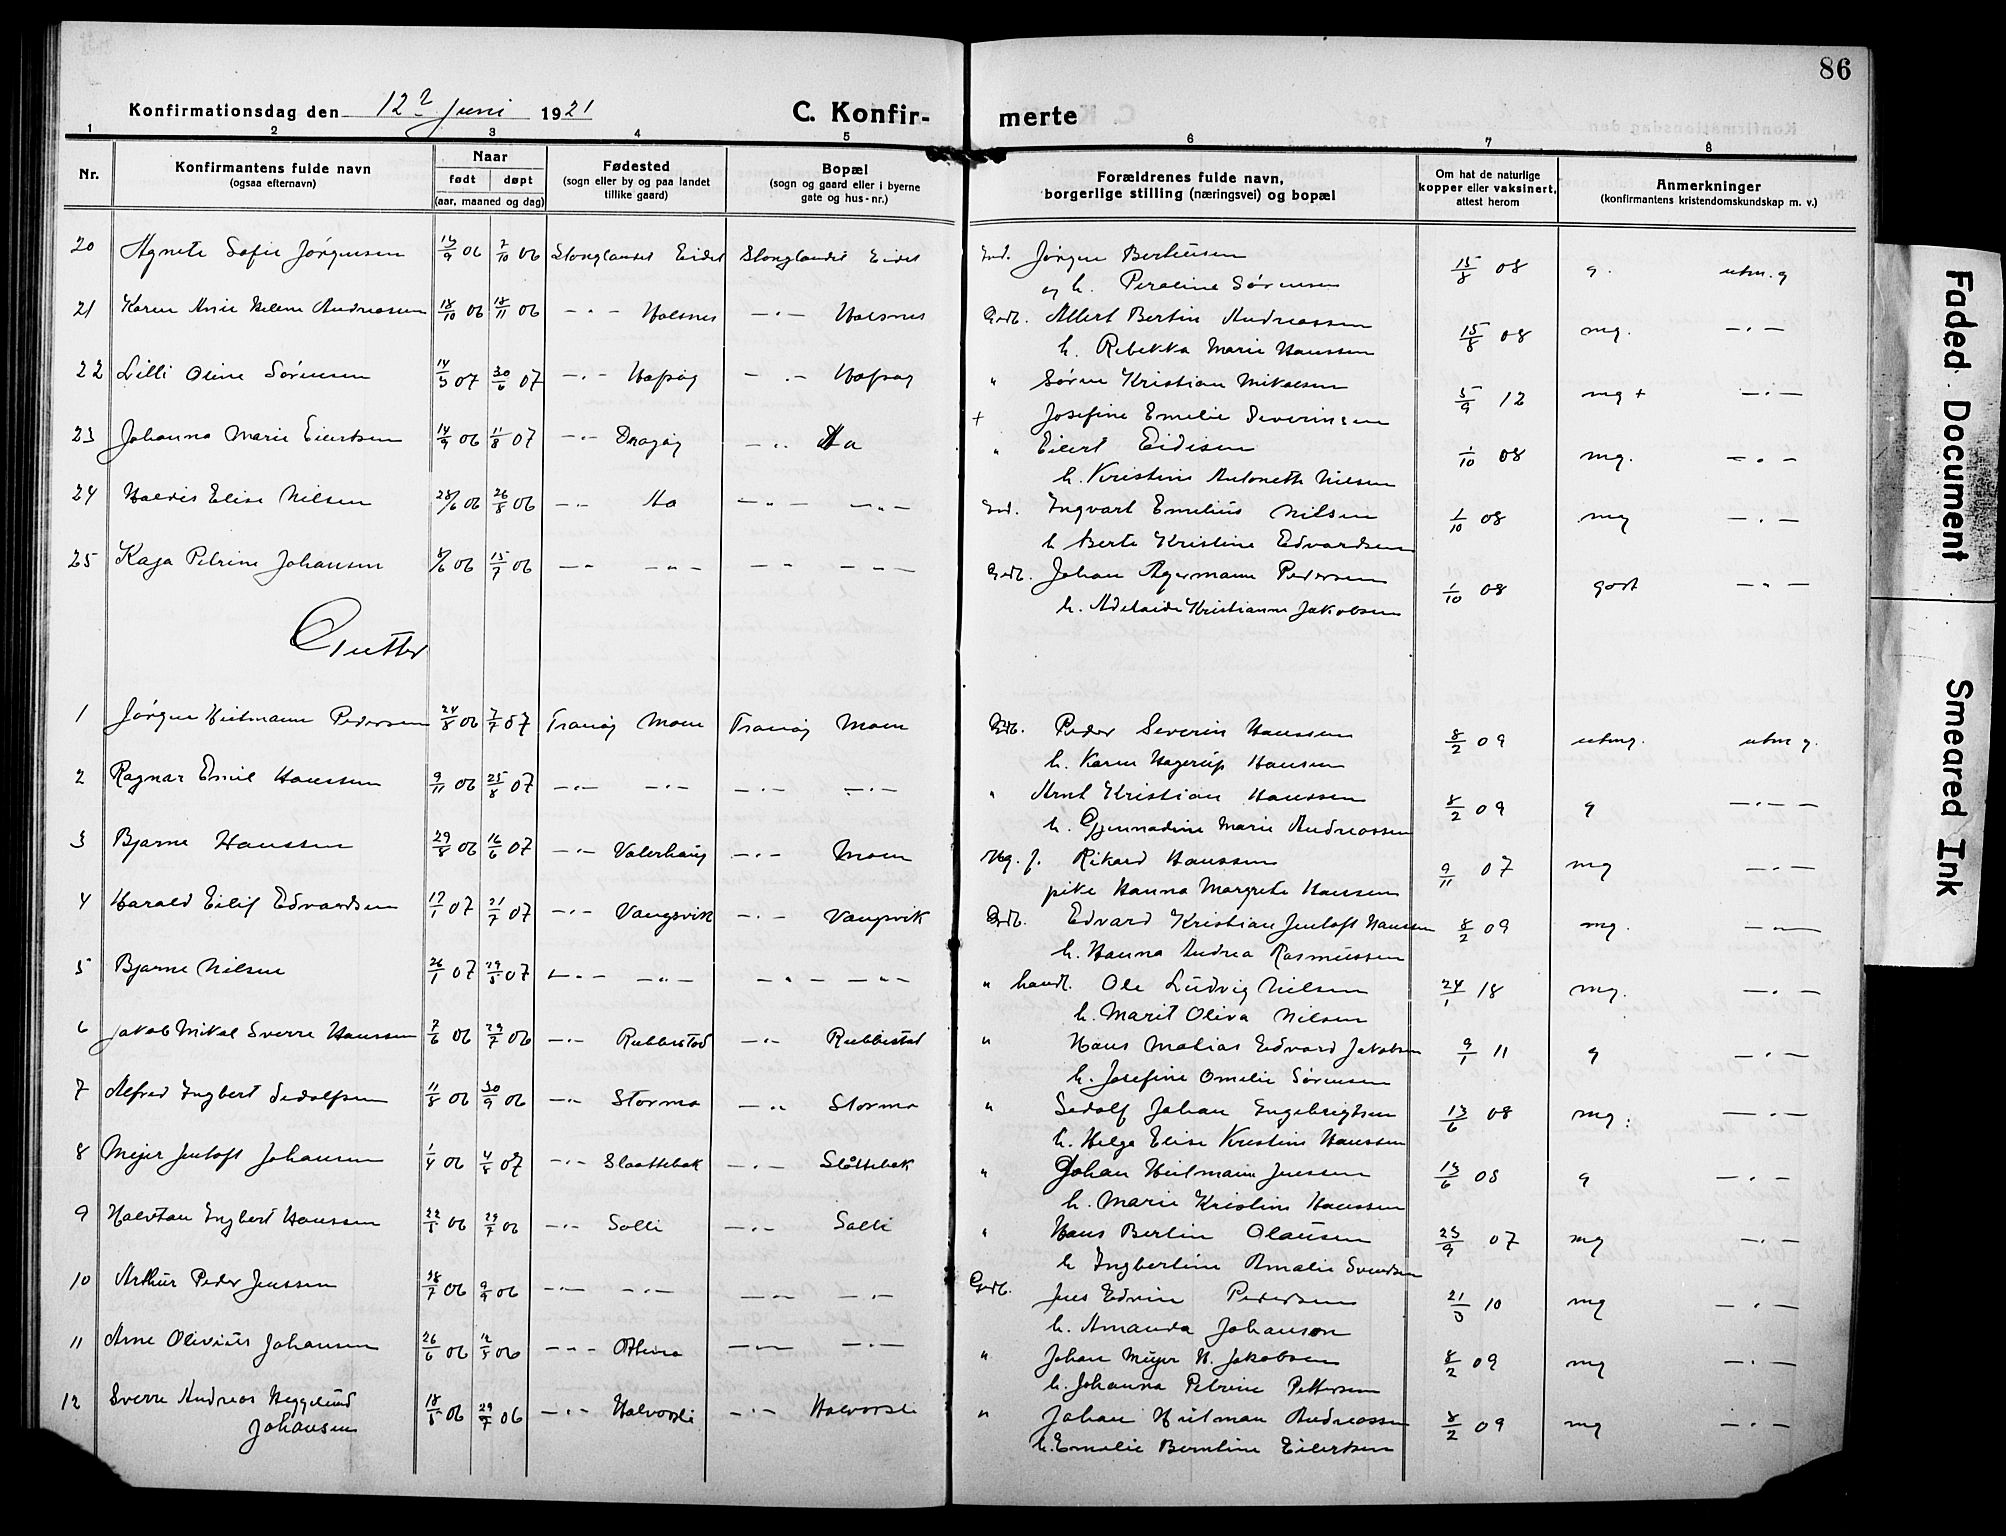 86
Konfirmationsdag den 12 Juni 1921 C. Konfir- merte
1 2 3 4 5 6 7 8
Nr. Konfirmantens fulde navn (ogsaa efternavn) Naar født døpt (aar, maaned og dag) Fødested (sogn eller by og paa landet tillike gaard) Bopæl (sogn og gaard eller i byerne gate og hus-nr.) Forældrenes fulde navn, borgerlige stilling (næringsvei) og bopæl Om hat de naturlige kopper eller vaksinert, attest herom Anmerkninger (konfirmantens kristendomskundskap m. v.)
20 Agnete Sofie Jørgensen 13/9 06 7/10 06 Stonglandet Eidet Stonglandet Eidet Jørgen Berteusen 15/8 08 g. utm. g
og h. Peraline Sørensen
21 Karen Anne Helene Andreassen 18/10 06 18/11 06 -"- Valsnes -"- Valsnes Grdb. Albert Bertin Andreassen 15/8 08 mg. -"-
h. Rebekka Marie Hanssen
22 Lilli Oline Sørensen 14/3 07 30/6 07 -"- Hofsøy -"- Hofsøy " Søren Kristian Mikalsen 5/9 12 mg + -"-
+ Josefine Emelie Severinsen
23 Johanna Marie Eiertsen 14/9 06 11/8 07 -"- Dragøy -"- Aa " Eilert Eidisen 1/10 08 mg. -"-
h. Kristine Antonette Nilsen
24 Haldis Elise Nilsen 28/6 06 26/8 06 -"- Aa -"- -"- Ingvart Emelius Nilsen 1/10 08 mg -"-
h Berte Kristine Edvardsen
25 Kaja Petrine Johansen 8/6 06 15/7 06 -"- -"- -"- -"- Grdb. Johan Agermann Pedersen 1/10 08 godt -"-
h. Adelaide Kristianne Jakobsen
Gutter
1 Jørgen Heitmann Pedersen 24/8 06 7/7 07 Tranøy Moen Tranøy Moen Grdb. Peder Severin Hanssen 8/2 09 utmg. utm g.
h. Karen Hagerup Hansen
2 Ragnar Emil Hanssen 9/11 06 25/8 07 -"- -"- -"- -"- " Arnt Kristian Hanssen 8/2 09 g -"-
h. Gjennadine Marie Andreassen
3 Bjarne Hanssen 29/8 06 16/6 07 -"- Valerhaug -"- Moen Ug. f. Rikard Hanssen 9/11 07 mg -"-
pike Hanna Margrete Hanssen
4 Harald Eilif Edvardsen 17/1 07 21/7 07 -"- Vangsvik -"- Vangsvik Grdb. Edvard Kristian Jentoft Hanssen 8/2 09 mg. -"-
h. Hanna Andrea Rasmussen
5 Bjarne Nilsen 26/1 07 29/5 07 -"- -"- -"- -"- " handl. Ole Ludvig Nilsen 24/1 18 mg. -"-
h. Marit Oliva Nilsen
6 Jakob Mikal Sverre Hanssen 7/6 06 29/7 06 -"- Rubbestad -"- Rubbestad " Hans Matias Edvard Jakobsen 9/1 11 g -"-
h. Josefine Omelie Sørensen
7 Alfred Ingbert Sedolfsen 11/8 06 30/9 06 -"- Stormo -"- Stormo " Sedolf Johan Engebrigtsen 13/6 08 mg. -"-
h. Helga Elise Kristine Hanssen
8 Mejer Jentoft Johansen 1/4 06 4/8 07 -"- Slaattebak -"- Slåttebak " Johan Heitmann Jenssen 13/6 08 g -"-
h. Marie Kristine Hanssen
9 Halvdan Ingbert Hanssen 22/5 06 29/7 06 -"- Solli -"- Solli " Hans Bertin Olausen 23/9 07 mg -"-
h Ingbertine Amalie Svendsen
10 Arthur Peder Jenssen 18/7 06 9/9 06 -"- -"- -"- -"- Grdb. Jens Edvin Pedersen 21/3 10 mg -"-
h. Amanda Johanson
11 Arne Olivius Johansen 26/6 06 12/8 06 -"- -"- -"- " Johan Mejer H. Jakobsen 8/2 09 mg -"-
h. Johanna Petrine Pettersen
12 Sverre Andreas Heggelund 18/5 06 29/7 06 -"- Halvorsli -"- Halvorsli " Johan Heitman Andreassen 8/2 09 mg -"-
Johansen h. Emelie Berntine Eilertsen
Faded Document
Smeared Ink